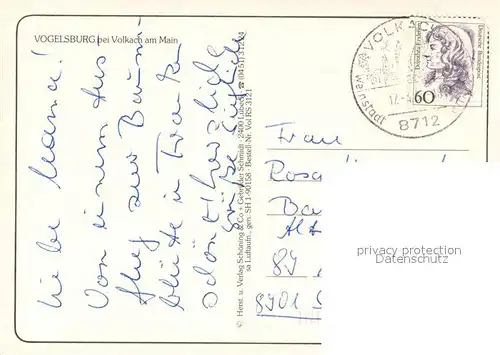 VOGELSBURG bei Volkach am Main
Liebe Mama!
Von einem Aus-
flug zur Baum-
blüte in Franken
herzliche
Grüße
© Herst. u. Verlag Schöning & Co + Gebrüder Schmidt · 2400 Lübeck ☎ (0451) 31204
sa Luftaufn., gen. SH 1-90158 · Bestell-Nr. Vol RS 3121
VOLKACH
8712
60
Deutsche Bundespost
Frau
Rosa
Ba
Alt
89
8901 S
privacy protection
Datenschutz